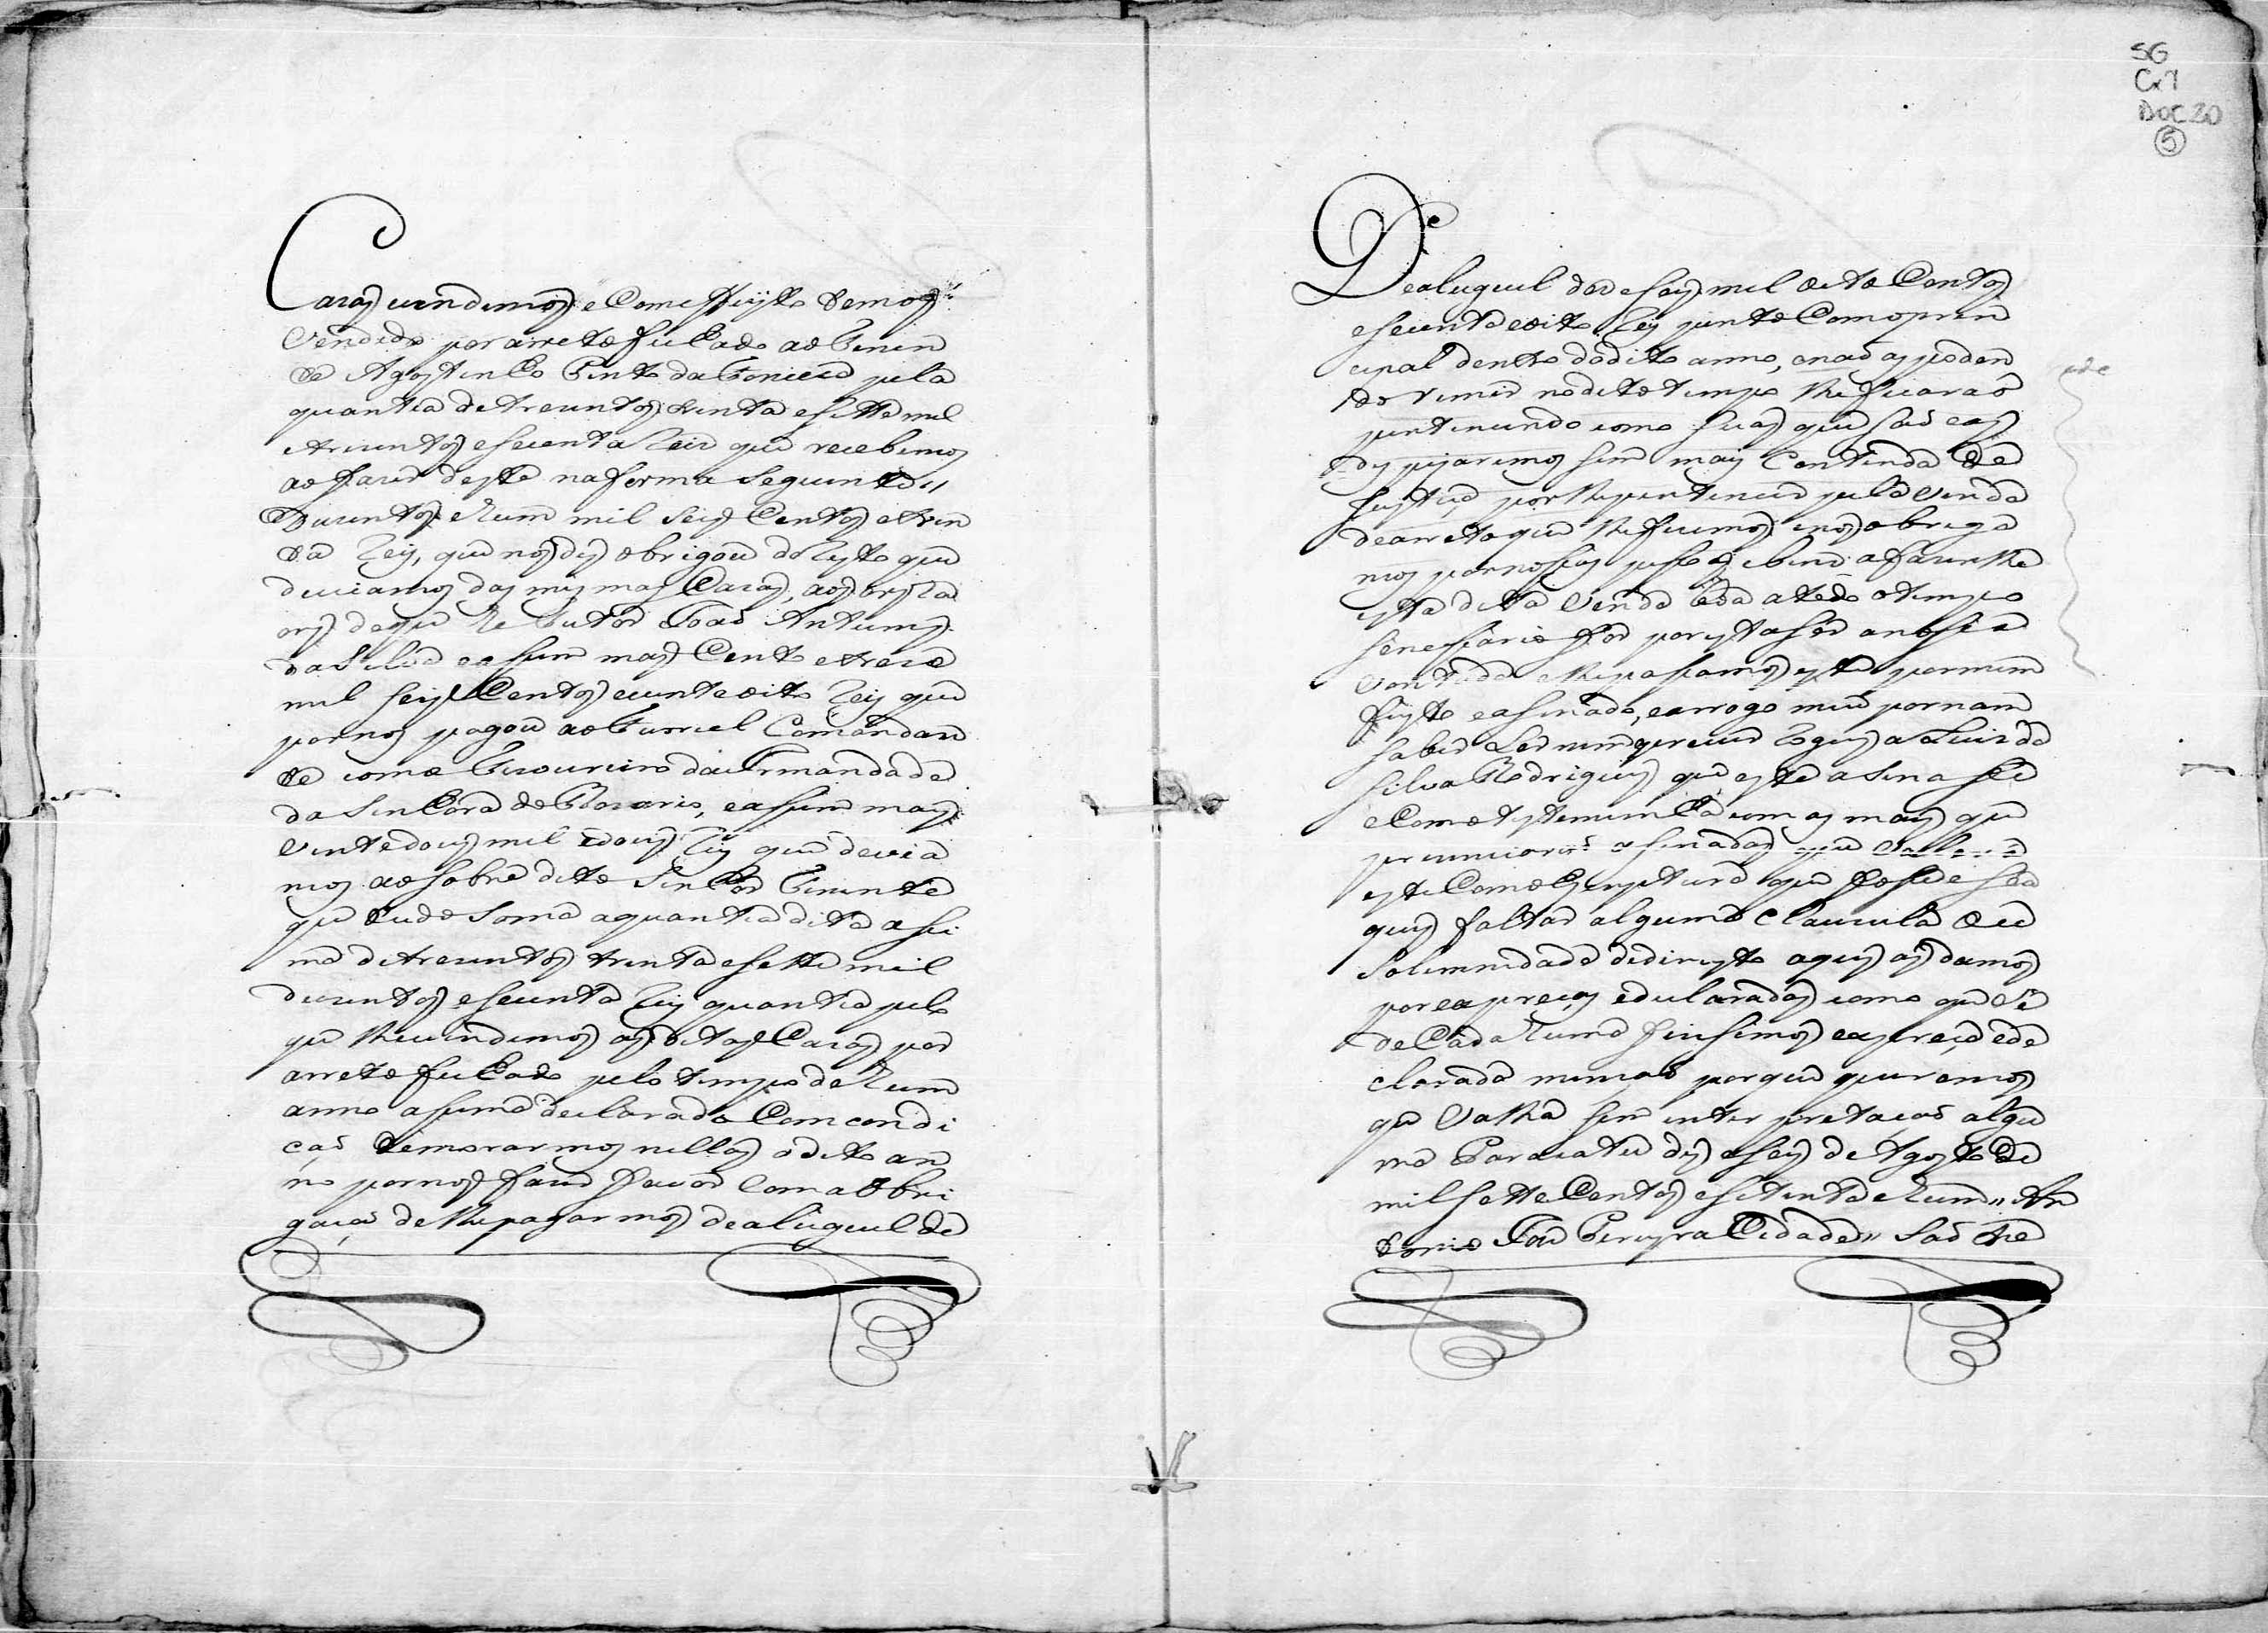 Cazas vendemos e Com effeyto temos
vendido por arreto fichado ao Tenen
te Agostinho Pinto da Fonceca pela
quantia de trezentos trinta e sette mil
duzentos e secenta Reis que recebemos
ao fazer deste na forma seguinte//
Duzentos e hum mil seis Centos e trin
ta Reis, que nos dis obrigou do resto que
deviamos das mesmas Cazas, aos
de que he tutor João Antunes
da Silva e assim mais Cento e treze
mil seis Centos e vinte e oito Reis que
por nos pagou ao Furriel Comandan
te como Tizoureiro da Irmandade
da Sinhora do Rozario, e assim mais
vinte dous mil e dous Reis que devia
mos ao sobre dito Sinhor Tinente
que tudo soma a quantia dita assi
ma de trezentos trinta e sette mil
duzentos e secenta Reis quantia pelo
que lhe vendemos as ditas Cazas por
arreto fichado pelo tempo de hum
anno assima declarado Com condi
cão de morarmos nellas o dito an
no por nos fazer favor com a obri
gação de lhe pagarmos de aluguel de
De aluguel dezeseis mil oito Centos
e secenta e oito Reis junto Com o prin
cipal dentro do dito anno, e não as poden
do remir no dito tempo lhe ficarão
pertencendo como suas que são e as
despejaremos sem mais Contenda de
Justiça, por lhe pertencer pela venda
de arreto que lhe fizemos e nos obriga
mos por nossas pessoas e bens a fazer lhe
esta dita venda boa a todo o tempo
se necessario for por esta ser a nossa
vontade e lhe passamos este por mim
feyto e assinado, e a rogo meu por nam
saber Ler nem escrever Roguei a Luis da
Silva Rodrigues que este asinasse
e Como testemunha com as mais que
prezenciarão asinados que
este Como Escriptura que fosse e se a
quis faltar alguma clauzula ou
solemnidade de direyto aquy as damos
por expreças e declaradas como que se
de Cada huma fizessemos expreça e de
clarada menção porque queremos
que valha sem interpretação algu
ma Paracatu dezaseis de Agosto de
mil sette Centos e settenta e hum// An
tonio José Pereyra Cidade// São Thé
SG
Cx7
DOC 30
5